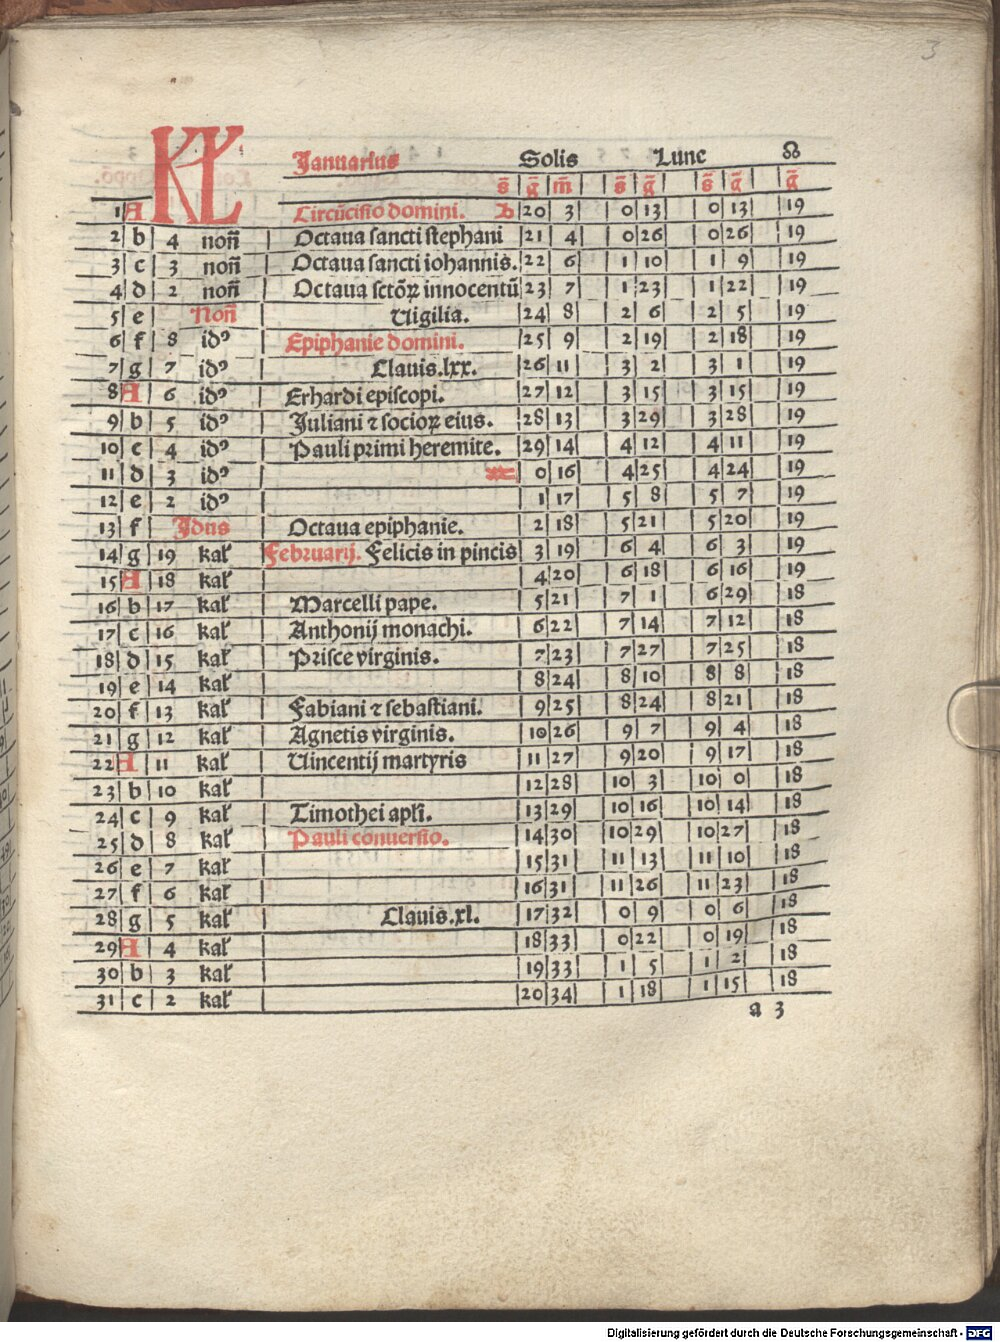 3
KL Januarius Solis Lune ☊
s̄ ḡ m̄ s̄ ḡ s̄ ḡ ḡ
1 A Circūcisio domini. ♑ 20 3 0 13 0 13 19
2 b 4 noñ Octaua sancti stephani 21 4 0 26 0 26 19
3 c 3 noñ Octaua sancti iohannis. 22 6 1 10 1 9 19
4 d 2 noñ Octaua sctōꝝ innocentū 23 7 1 23 1 22 19
5 e Noñ Uigilia. 24 8 2 6 2 5 19
6 f 8 idꝰ Epiphanie domini. 25 9 2 19 2 18 19
7 g 7 idꝰ Clauis.lxx. 26 11 3 2 3 1 19
8 A 6 idꝰ Erhardi episcopi. 27 12 3 15 3 15 19
9 b 5 idꝰ Juliani ⁊ socioꝝ eius. 28 13 3 29 3 28 19
10 c 4 idꝰ Pauli primi heremite. 29 14 4 12 4 11 19
11 d 3 idꝰ ♒ 0 16 4 25 4 24 19
12 e 2 idꝰ 1 17 5 8 5 7 19
13 f Idus Octaua epiphanie. 2 18 5 21 5 20 19
14 g 19 kal' Februarij. Felicis in pincis 3 19 6 4 6 3 19
15 A 18 kal' 4 20 6 18 6 16 19
16 b 17 kal' Marcelli pape. 5 21 7 1 6 29 18
17 c 16 kal' Anthonij monachi. 6 22 7 14 7 12 18
18 d 15 kal' Prisce virginis. 7 23 7 27 7 25 18
19 e 14 kal' 8 24 8 10 8 8 18
20 f 13 kal' Fabiani ⁊ sebastiani. 9 25 8 24 8 21 18
21 g 12 kal' Agnetis virginis. 10 26 9 7 9 4 18
22 A 11 kal' Uincentij martyris 11 27 9 20 9 17 18
23 b 10 kal' 12 28 10 3 10 0 18
24 c 9 kal' Timothei apłi. 13 29 10 16 10 14 18
25 d 8 kal' Pauli conuersio. 14 30 10 29 10 27 18
26 e 7 kal' 15 31 11 13 11 10 18
27 f 6 kal' 16 31 11 26 11 23 18
28 g 5 kal' Clauis.xl. 17 32 0 9 0 6 18
29 A 4 kal' 18 33 0 22 0 19 18
30 b 3 kal' 19 33 1 5 1 2 18
31 c 2 kal' 20 34 1 18 1 15 18
a 3
Digitalisierung gefördert durch die Deutsche Forschungsgemeinschaft - DFG